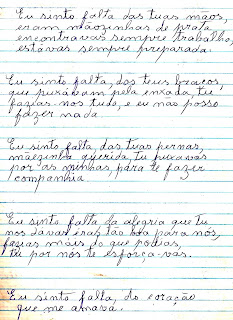 Eu sinto falta das tuas mãos,
eram mãozinhas de prata
encontravas sempre trabalho,
estavas sempre preparada.
Eu sinto falta, dos teus braços,
que puxavam pela inxada, tu
fazias-nos tudo, e eu não posso
fazer nada.
Eu sinto falta, das tuas pernas,
mãezinha querida, tu puxavas
por as minhas para te fazer
companhia.
Eu sinto falta da alegria que tu
nos davas eras tão boa para nós,
fazias mais do que podias,
tu por nós te esforça-vas.
Eu sinto falta, do coração
que me amava.